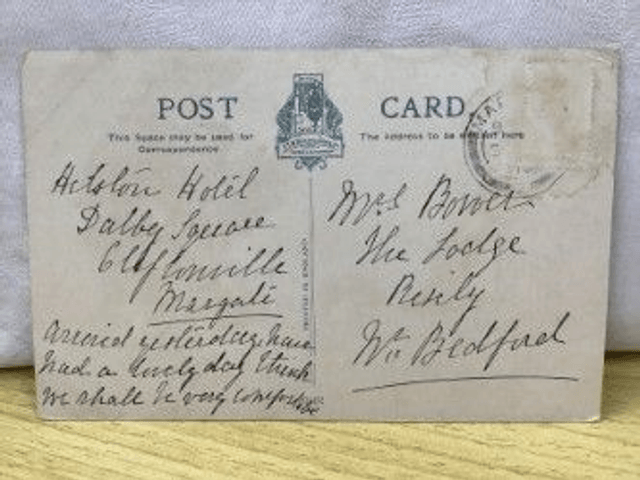 POST CARD
This Space may be used for
Correspondence
The Address to be written here
Hotel
Dalby Square
Cliftonville
Margate
arrived yesterday have
had a lovely day think
we shall be very
Mrs Bower
The Lodge
Risily
Nr Bedford
PRINTED IN ENGLAND
MAR